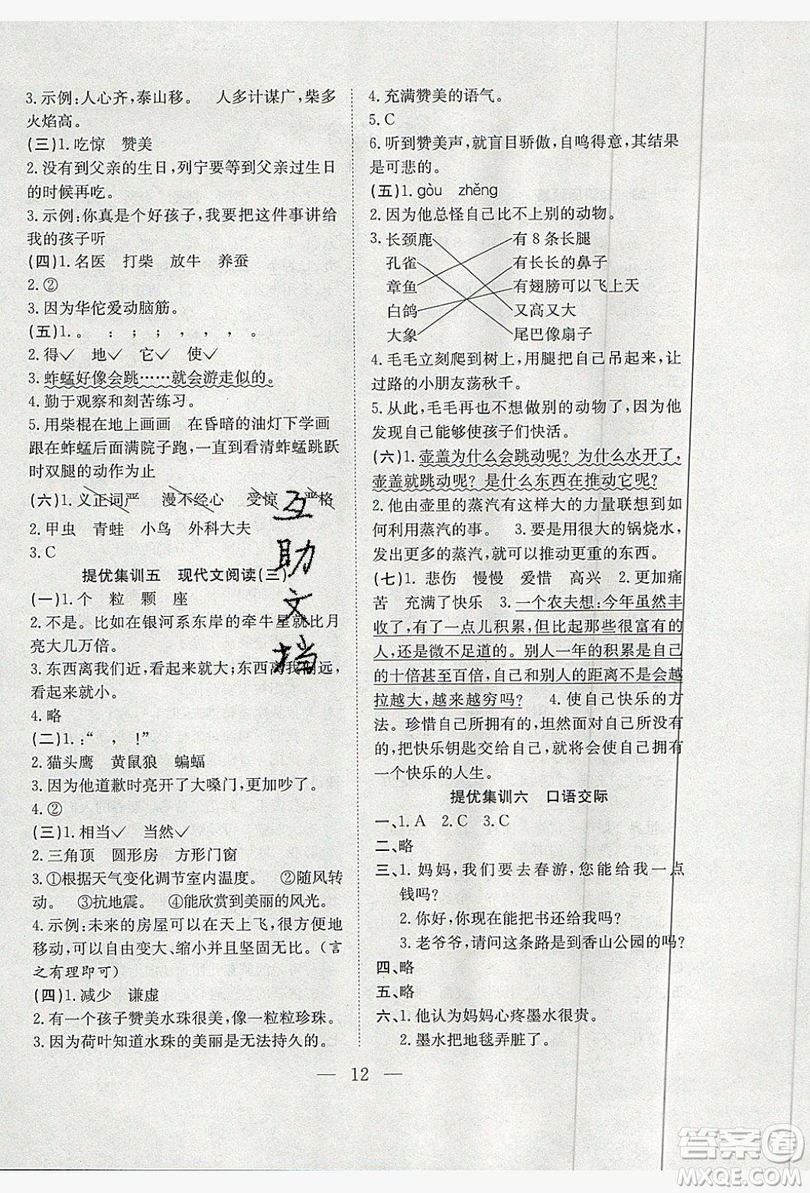 3. 示例:人心齐,泰山移。 人多计谋广,柴多
火焰高。
(三)1. 吃惊 赞美
2. 没有到父亲的生日,列宁要等到父亲过生日
的时候再吃。
3. 示例:你真是个好孩子,我要把这件事讲给
我的孩子听
(四)1. 名医 打柴 放牛 养蚕
2. ②
3. 因为华佗爱动脑筋。
(五)1. 。 ; ; , , 。
2. 得✓ 地✓ 它✓ 使✓
3. 蚱蜢好像会跳……就会游走似的。
4. 勤于观察和刻苦练习。
5. 用柴棍在地上画画 在昏暗的油灯下学画
跟在蚱蜢后面满院子跑,一直到看清蚱蜢跳跃
时双腿的动作为止
(六)1. 义正词严 漫不经心 受惊 严格
2. 甲虫 青蛙 小鸟 外科大夫
3. C
提优集训五 现代文阅读(三)
(一)1. 个 粒 颗 座
2. 不是。比如在银河系东岸的牵牛星就比月
亮大几万倍。
3. 东西离我们近,看起来就大;东西离我们远,
看起来就小。
4. 略
(二)1. :“ , !”
2. 猫头鹰 黄鼠狼 蝙蝠
3. 因为他道歉时亮开了大嗓门(或声音太大)。
4. ②
(三)1. 相当✓ 当然✓
2. 三角顶 圆形房 方形门窗
3. ①根据天气变化调节室内温度。 ②随风转
动。 ③抗地震。 ④能欣赏到美丽的风光。
4. 示例:未来的房屋可以在天上飞,很方便地
移动,可以自由变大、缩小并且坚固无比。(言
之有理即可)
(四)1. 减少 谦虚
2. 有一个孩子赞美水珠很美,像一粒粒珍珠。
3. 因为荷叶知道水珠的美丽是无法持久的。
4. 充满赞美的语气。
5. C
6. 听到赞美声,就盲目骄傲,自鸣得意,其结果
是可悲的。
(五)1. gòu zhěng
2. 因为他总怪自己比不上别的动物。
3. 长颈鹿 有 8 条长腿
孔雀 有长长的鼻子
章鱼 有翅膀可以飞上天
白鸽 又高又大
大象 尾巴像扇子
4. 毛毛立刻爬到树上,用腿把自己吊起来,让
过路的小朋友荡秋千。
5. 从此,毛毛再也不想做别的动物了,因为他
能够使孩子们快活。
(六)1. 壶盖为什么会跳动呢?为什么水开了,
壶盖就会跳动呢?是什么东西在推动它呢?
2. 他由壶里的蒸汽有这么大的力量联想出如
何利用蒸汽的事。 3. 要是用更多的锅烧水,
发出更多的蒸汽,能推动更重的东西。
(七)1. 悲伤 慢慢 爱惜 高兴 2. 充满痛
苦 充满了快乐 3. 一个农夫想:今年虽然丰
收了,有了一点儿积累,但比起那些很富有的
人,还是微不足道的。别人一年的积累是自己
的十倍甚至百倍,自己和别人的距离不是会越
拉越大,越来越穷吗? 4. 使自己快乐的方
法。珍惜自己所拥有的,坦然面对所没有的,
把快乐钥匙交给自己,就将会使自己能够拥有
一个快乐的人生。
提优集训六 口语交际
一、1. A 2. C 3. C
二、略
三、1. 妈妈,我们要去春游,您能给我一点
钱吗?
2. 你好,你现在能把书还给我吗?
3. 老爷爷,请问这条路是到香山公园的吗?
四、略
五、略
六、1. 他认为妈妈心疼墨水很贵。
2. 墨水把地毯弄脏了。
— 12 —
互助文档
答案圈
MXQE.COM